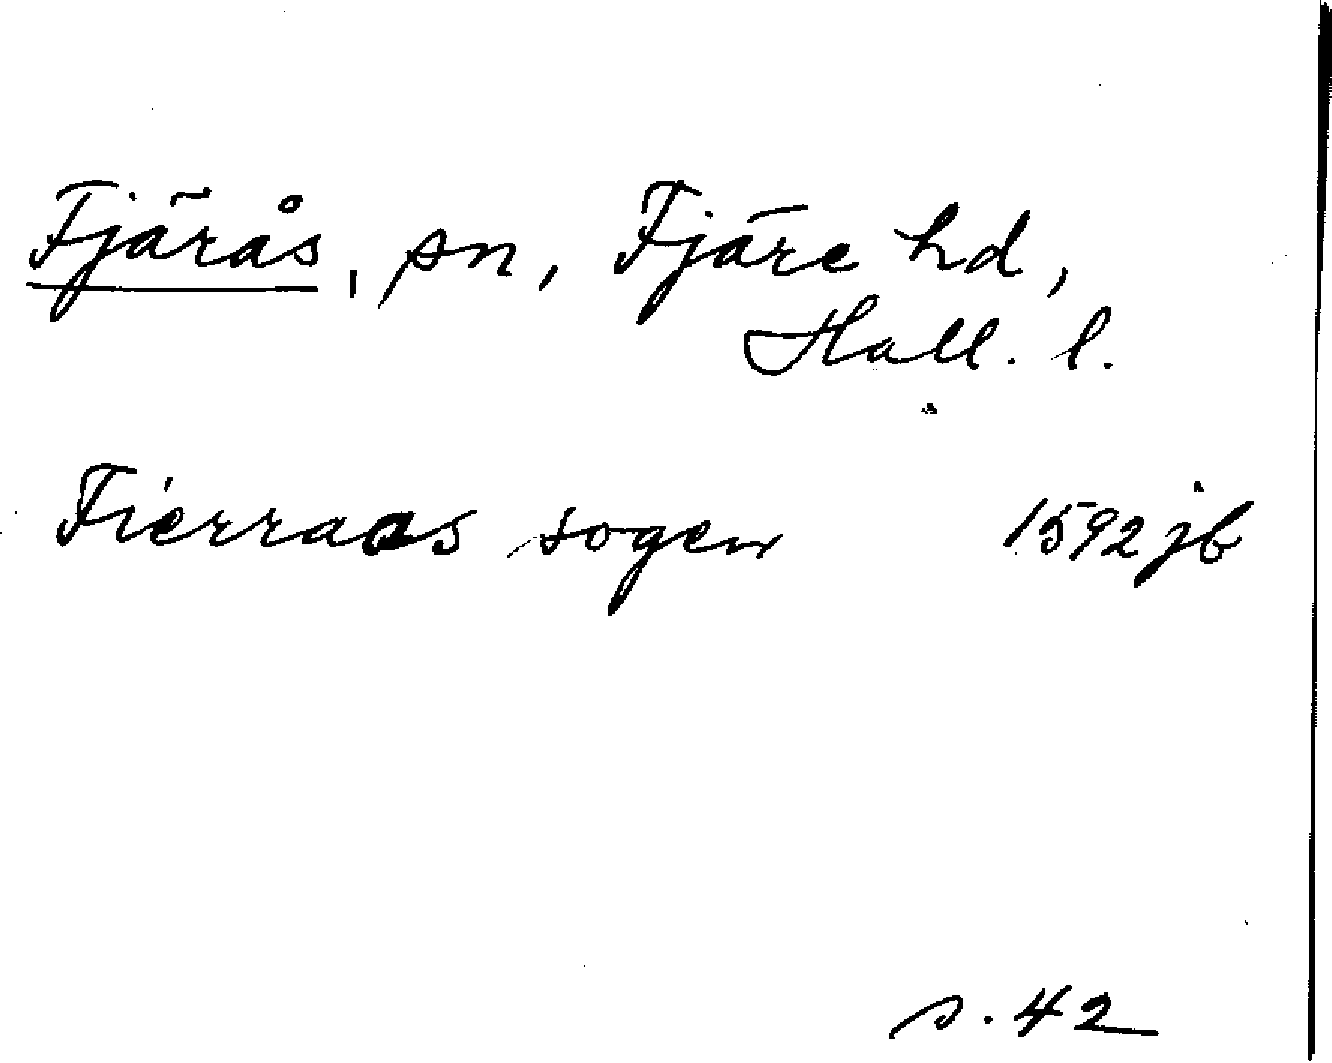 Fjärås, sn, Fjäre hd,
Hall. l.
Fierraas sogen 1592 jb
s. 42